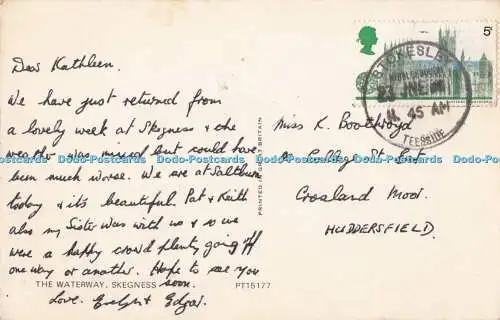 Dear Kathleen.
We have just returned from
a lovely week at Skegness & the
weather was mixed but could have
been much worse. We are at Saltburn
today & its beautiful. Pat & Keith
also my Sister was with us & so we
were a happy crowd plenty going off
one way or another. Hope to see you
soon.
Love. Evelyn & Edgar.
THE WATERWAY, SKEGNESS
PT15177
PRINTED IN GREAT BRITAIN
5d
STOKESLEY
23 JNE
11. 45 AM
TEESSIDE
Miss K. Boothroyd
St
Crosland Moor.
HUDDERSFIELD.
Dodo-Postcards Dodo-Postcards Dodo-Postcards Dodo-Postcards Dodo-Postcards Dodo-Postcards